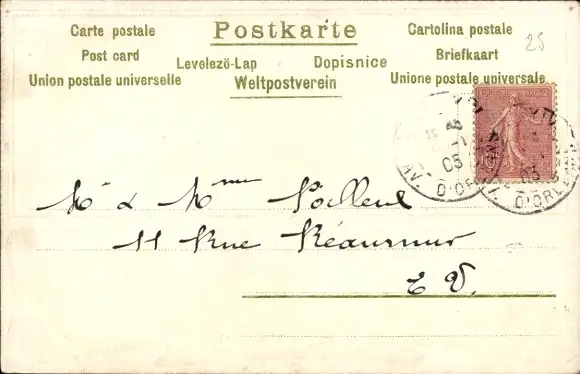 Carte postale Postkarte Cartolina postale
25
Post card Levelező-Lap Dopisnice Briefkaart
Union postale universelle Weltpostverein Unione postale universale
AV. D'ORL
05
D'ORLE
05
Mr & Mme
11 Rue Réaumur
E V.